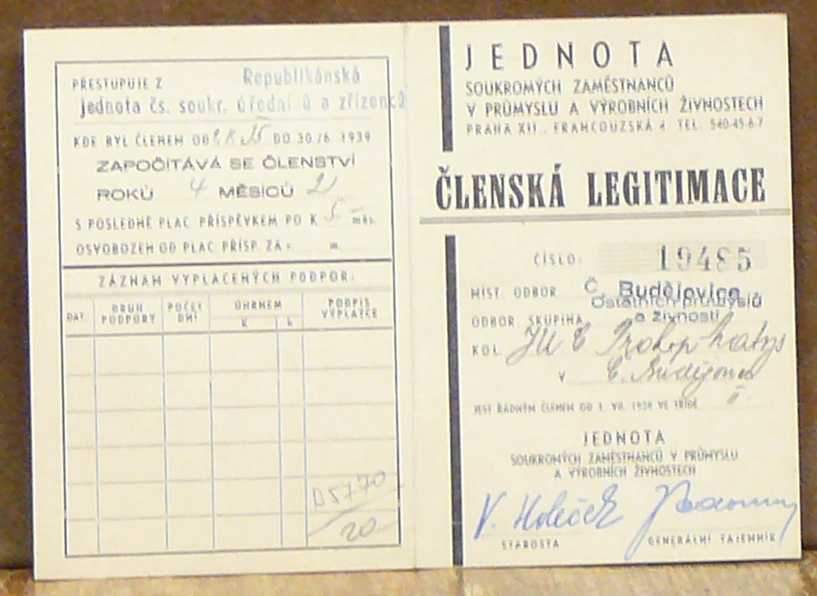 PŘESTUPUJE Z Republikánská
jednota čs. soukr. úřední ů a zřízenců
KDE BYL ČLENEM OD DO 30/6 1939
ZAPOČÍTÁVÁ SE ČLENSTVÍ
ROKŮ 4 MĚSÍCŮ 2
S POSLEDNĚ PLAC PŘÍSPĚVKEM PO K 5
OSVOBOZEN OD PLAC PŘÍSP. ZA
ZÁZNAM VYPLACENÝCH PODPOR:
DAT DRUH PODPORY POČET DNÍ ÚHRNEM K h PODPIS VYPLATCE
D 5770
20
JEDNOTA
SOUKROMÝCH ZAMĚSTNANCŮ
V PRŮMYSLU A VÝROBNÍCH ŽIVNOSTECH
PRAHA XII., FRANCOUZSKÁ 4 TEL. 540-45-6-7
ČLENSKÁ LEGITIMACE
ČÍSLO: 19485
MÍST. ODBOR Č. Budějovice
ostatních průmyslů
ODBOR. SKUPINA a živností
KOL. Prokop
V Č. Budějovice
JEST ŘÁDNÝM ČLENEM OD 1. VII. 1939 VE TŘÍDĚ II.
JEDNOTA
SOUKROMÝCH ZAMĚSTNANCŮ V PRŮMYSLU
A VÝROBNÍCH ŽIVNOSTECH
V. Holeček
STAROSTA GENERÁLNÍ TAJEMNÍK